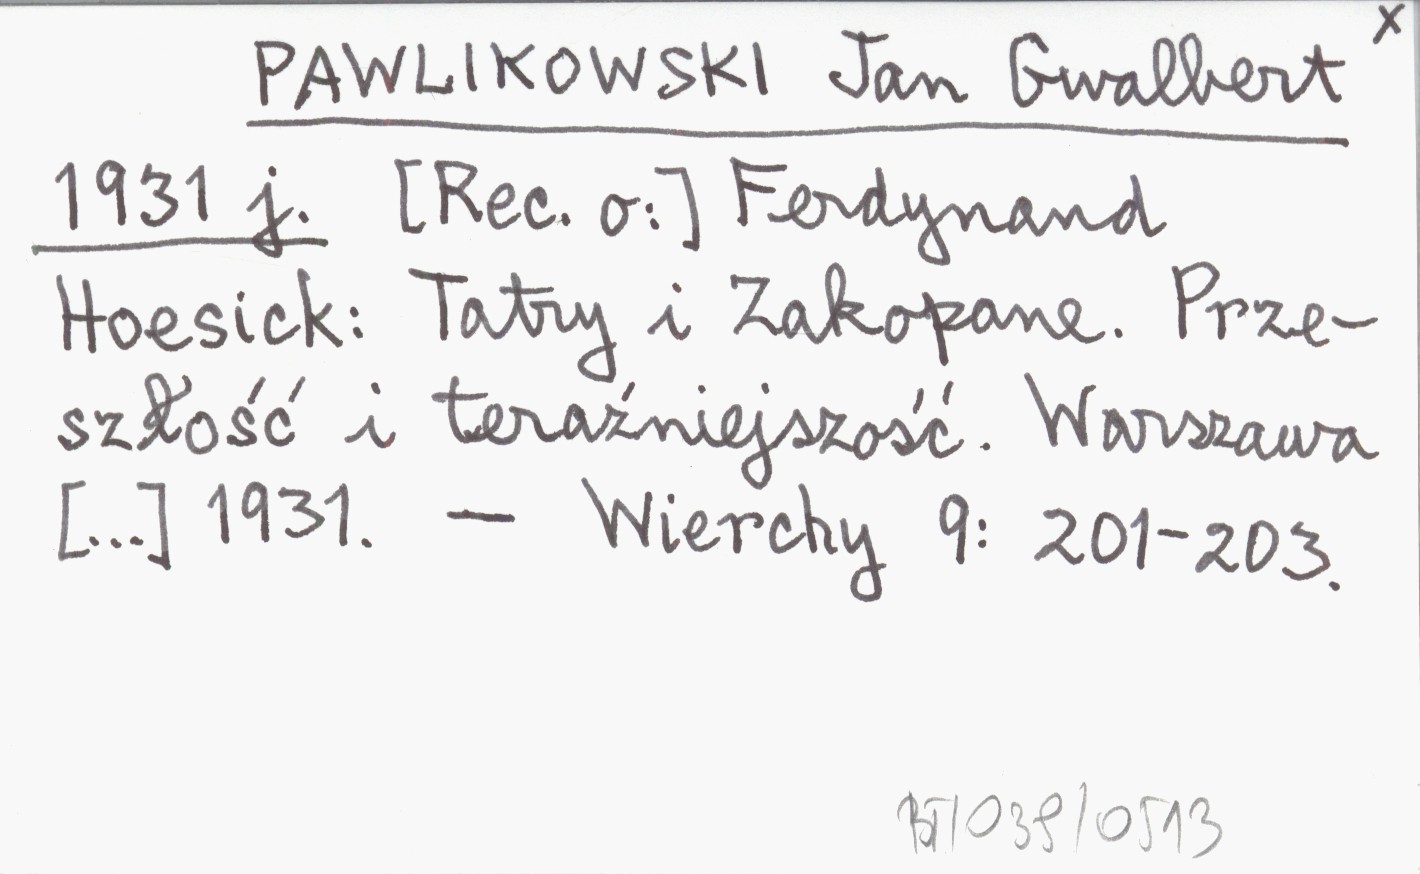 x
PAWLIKOWSKI Jan Gwalbert
1931 j. [Rec. o:] Ferdynand
Hoesick: Tatry i Zakopane. Prze-
szłość i teraźniejszość. Warszawa
[...] 1931. — Wierchy 9: 201-203.
BT/039/0513